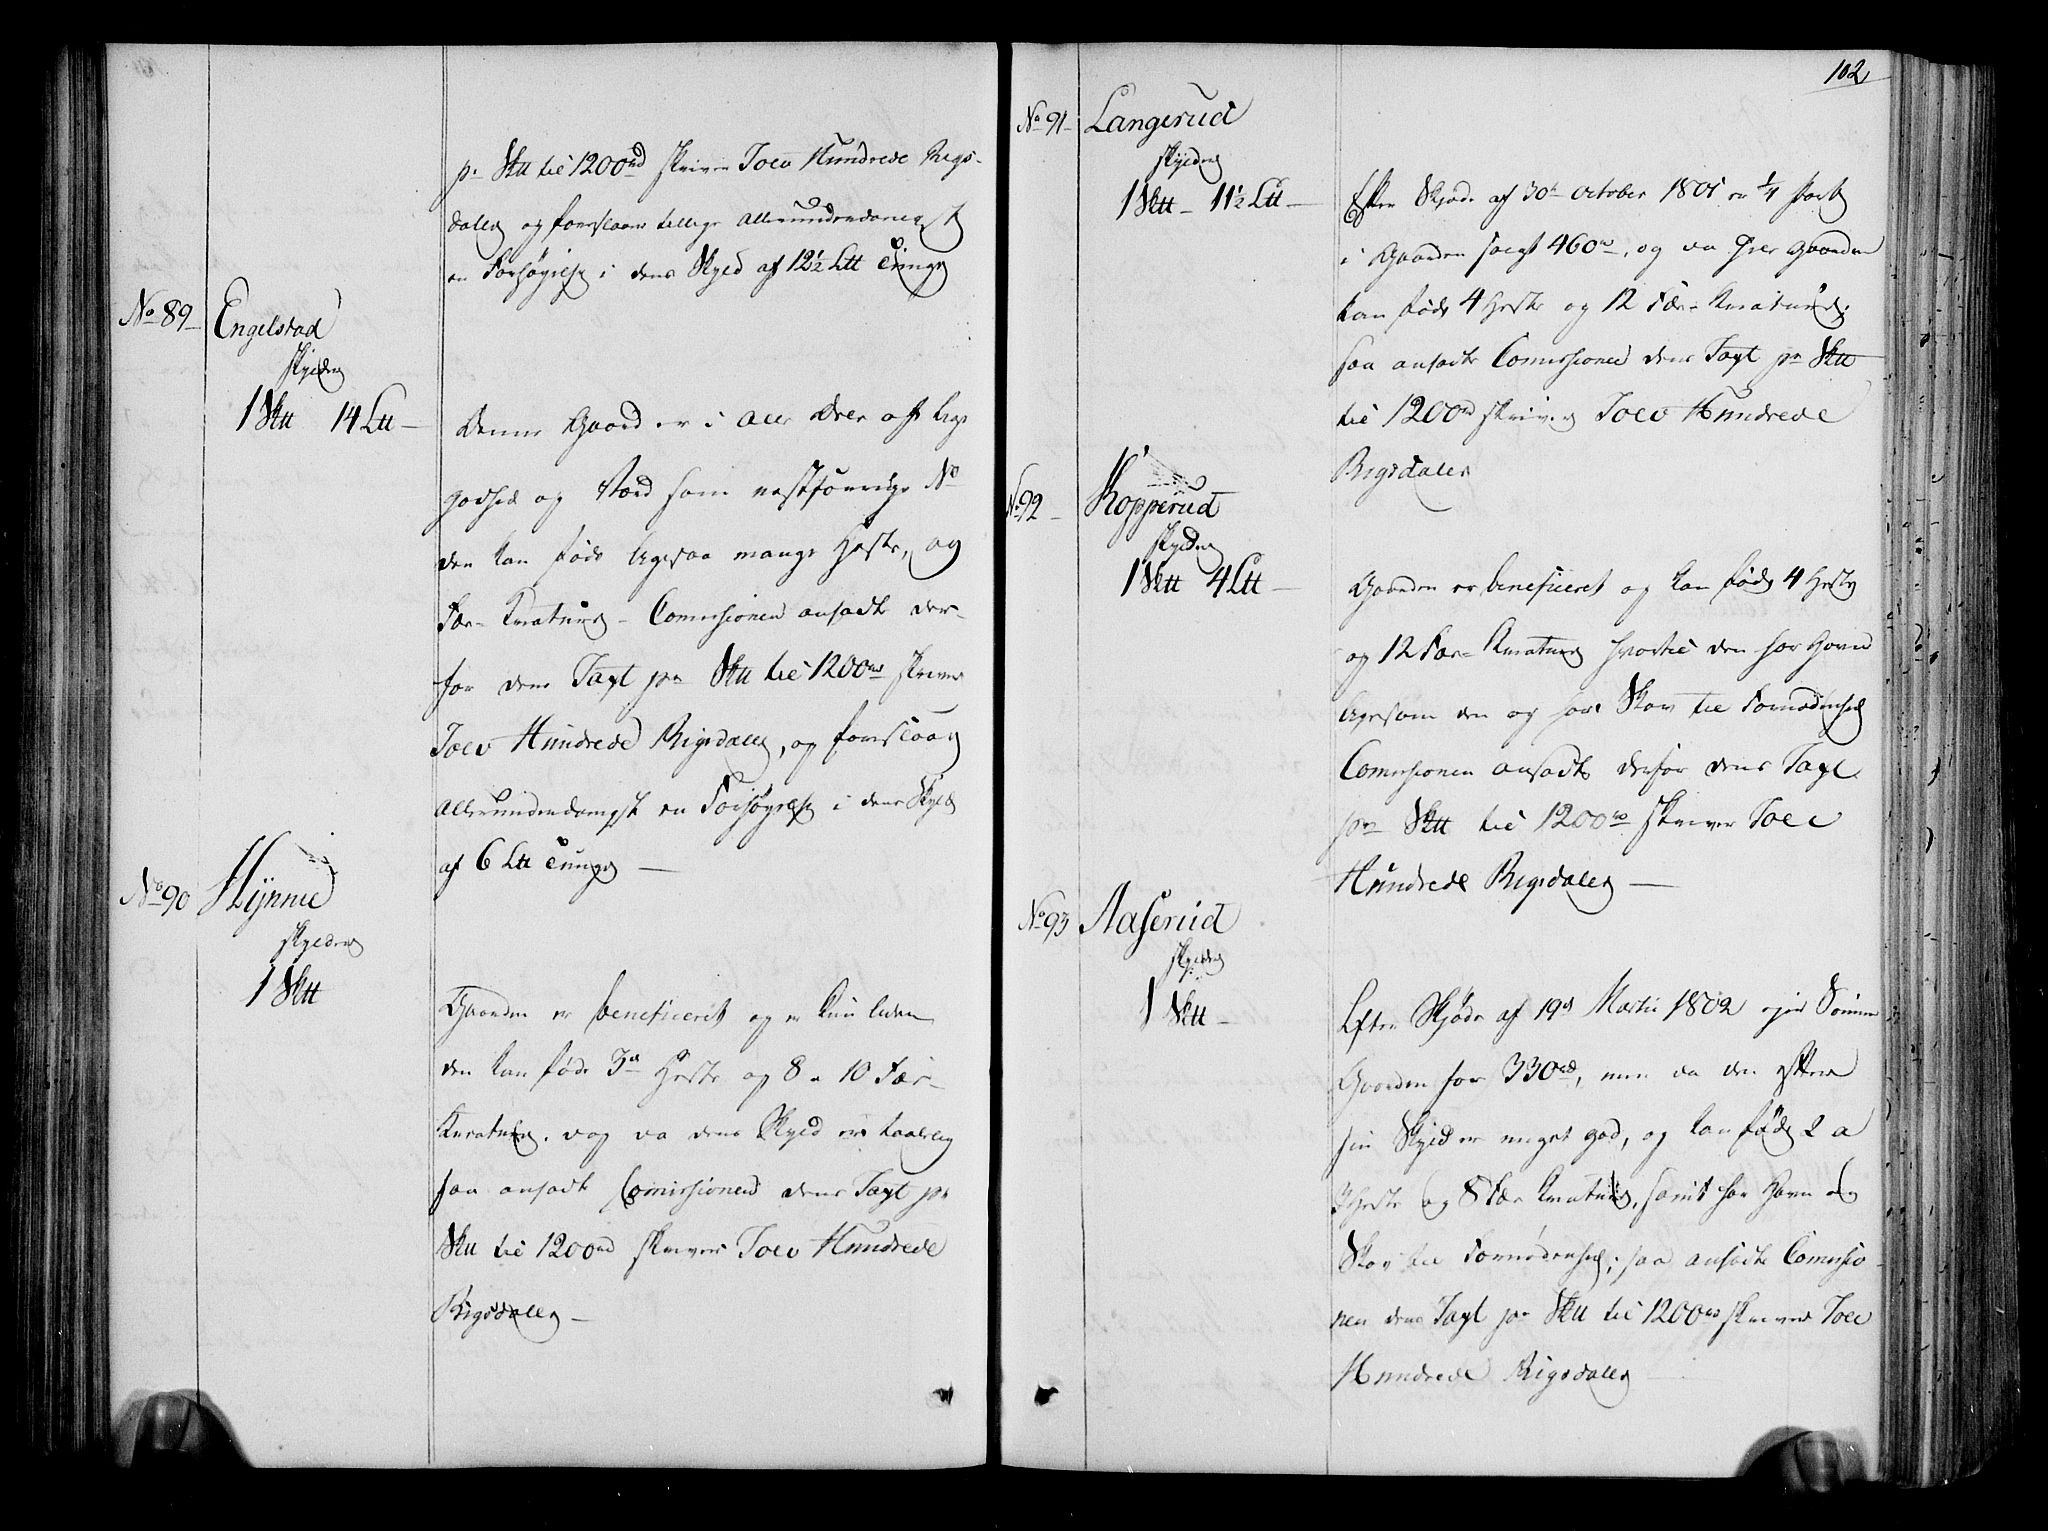 pr Sktt til 1200rd skriver Tolv Hundrede Rigs-
daler og foreslaaer tillige allerunderdanigst
en Forhøyelse i dens Skyld af 12½ Ltt Tunge
No 89 Engelstad
skylder
1 Sktt 14 Ltt
Denne Gaard er i alle Dele af lige
godhed og Værd som nestforrige No
den kan føde ligesaa mange Heste, og
Fæe-Kreature - Comissionen ansadte der-
for dens Taxt pr Sktt til 1200rd skriver
Tolv Hundrede Rigsdaler, og foreslaaer
allerunderdanigst en Forhøyelse i dens Skyld
af 6 Ltt Tunge
No 90 Hynne
skylder
1 Sktt
Gaarden er beneficeret og er kun liden
den kan føde 3de Heste og 8 a 10 Fæe-
Kreature. og da dens Skyld er taalelig
saa ansadte Comissionen dens Taxt pr
Sktt til 1200rd skriver Tolv Hundrede
Rigsdaler
102
No 91 Langerud
skylder
1 Sktt - 11½ Ltt
Efter Skjøde af 30te October 1801 er ¼ Part
i Gaarden solgt 460rd, og da hele Gaarden
kan føde 4 Heste og 12 Fæe-Kreature;
saa ansadte Comissionen dens Taxt pr Sktt
til 1200rd skriver Tolv Hundrede
Rigsdaler
No 92 Kopperud
skylder
1 Sktt 4 Ltt
Gaarden er beneficeret og kan føde 4 Heste
og 12 Fæe-Kreature hvortil den har Havn
ligesom den og har Skov til Fornødenhed
Comissionen ansadte derfor dens Taxt
pr Sktt til 1200rd skriver Tolv
Hundrede Rigsdaler
No 93 Aaserud
skylder
1 Sktt
Efter Skjøde af 19de Martii 1802 er
Gaarden for 330rd, men da den efter
sin Skyld er meget god, og kan føde 2 a
3 Heste og 8 Fæe Kreature, samt har Havn og
Skov til Fornødenhed; saa ansadte Comissio-
nen dens Taxt pr Sktt til 1200rd skriver Tolv
Hundrede Rigsdaler